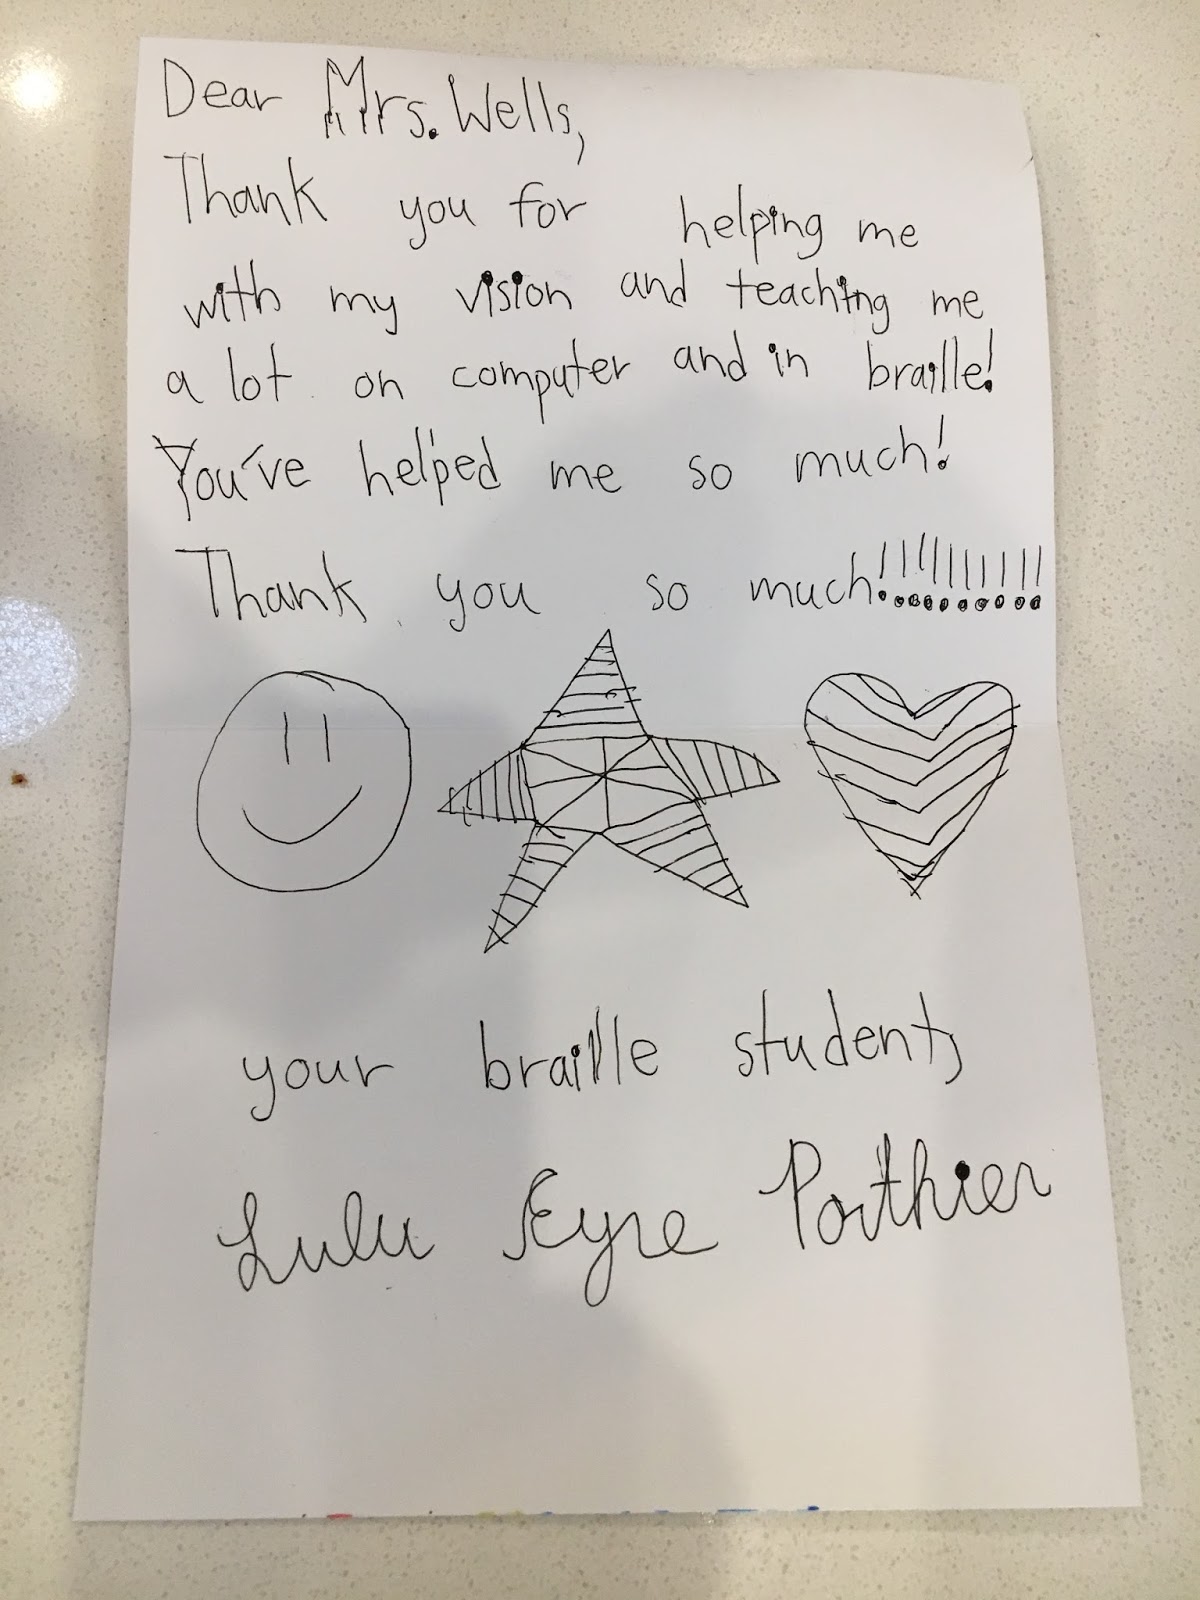 Dear Mrs. Wells,
Thank you for helping me
with my vision and teaching me
a lot on computer and in braille!
You've helped me so much!
Thank you so much!!!!!!!!!!
your braille student,
Lulu Eyre Poithier